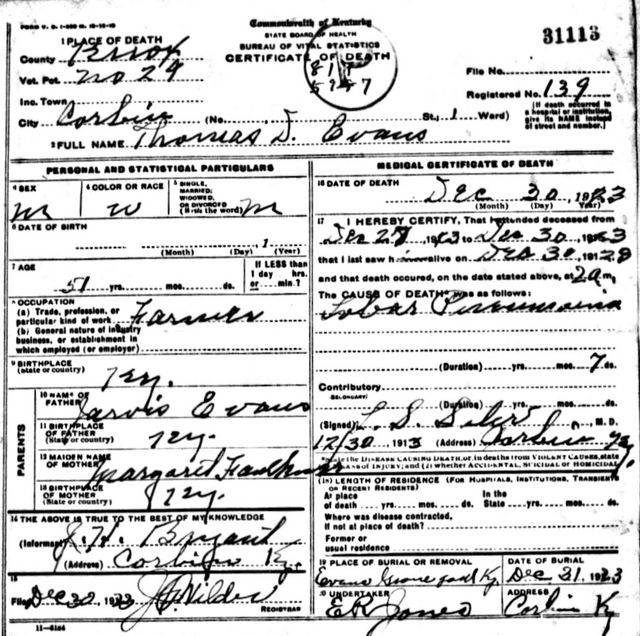 FORM V. S. 1-
Commonwealth of Kentucky
STATE BOARD OF HEALTH
BUREAU OF VITAL STATISTICS
CERTIFICATE OF DEATH
31113
1 PLACE OF DEATH
County Knox
Vot. Pct. No 29
Inc. Town
City Corbin (No. St., 1 Ward)
File No.
Registered No. 139
[If death occurred in a hospital or institution, give its NAME instead of street and number.]
2 FULL NAME Thomas D. Evans
PERSONAL AND STATISTICAL PARTICULARS
3 SEX
M
4 COLOR OR RACE
W
5 SINGLE, MARRIED, WIDOWED, OR DIVORCED
(Write the word) M
6 DATE OF BIRTH
, 1
(Month) (Day) (Year)
7 AGE
51 yrs. mos. ds.
If LESS than
1 day hrs.
or min.?
8 OCCUPATION
(a) Trade, profession, or
particular kind of work Farmer
(b) General nature of industry
business, or establishment in
which employed (or employer)
9 BIRTHPLACE
(State or country)
Ky.
PARENTS
10 NAME OF
FATHER
Jarvis Evans
11 BIRTHPLACE
OF FATHER
(State or country)
Ky.
12 MAIDEN NAME
OF MOTHER
Margaret
13 BIRTHPLACE
OF MOTHER
(State or country)
Ky.
14 THE ABOVE IS TRUE TO THE BEST OF MY KNOWLEDGE
(Informant) J. H. Bryant
(Address) Corbin Ky.
15
Filed Dec 1923
REGISTRAR
11-3184
MEDICAL CERTIFICATE OF DEATH
16 DATE OF DEATH
Dec 30 1923
(Month) (Day) (Year)
17 I HEREBY CERTIFY, That I attended deceased from
Dec to Dec 30, 1923
that I last saw h alive on Dec 30, 19
and that death occured, on the date stated above, at 2 a m.
The CAUSE OF DEATH was as follows:
Lobar Pneumonia
(Duration) yrs. mos. 7 ds.
Contributory
SECONDARY
(Duration) yrs. mos. ds.
(Signed) L. S. , M. D.
12/30 191 (Address) Corbin Ky
State the DISEASE CAUSING DEATH, or, in deaths from VIOLENT CAUSES, state
MEANS OF INJURY; and (2) whether ACCIDENTAL, SUICIDAL or HOMICIDAL
LENGTH OF RESIDENCE (FOR HOSPITALS, INSTITUTIONS, TRANSIENTS
OR RECENT RESIDENTS)
At place In the
of death yrs. mos. ds. State yrs. mos. ds.
Where was disease contracted,
if not at place of death?
Former or
usual residence
19 PLACE OF BURIAL OR REMOVAL
Evans Ky
DATE OF BURIAL
Dec 31 1923
20 UNDERTAKER
E R Jones
ADDRESS
Corbin Ky